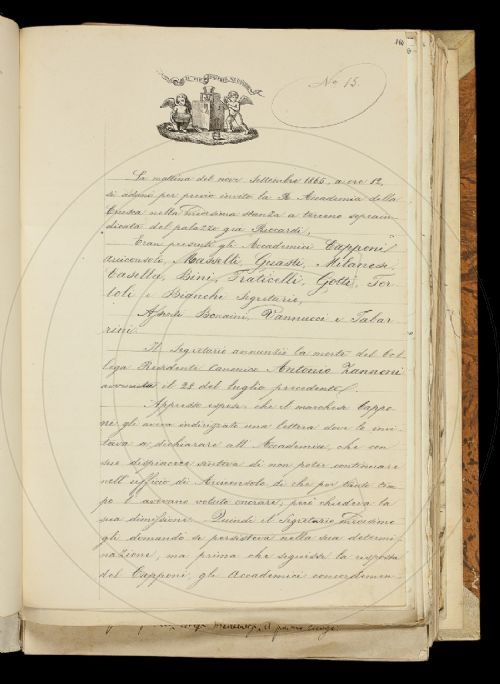 No 15.
La mattina del nove Settembre 1865, a ore 12,
si adunò per previo invito la R. Accademia della
Crusca nella stanza a terreno
del palazzo già Riccardi,
Eran presenti gli Accademici Capponi
Arciconsolo, Masselli, Guasti, Milanesi,
Casella, Bini, Fraticelli, Gotti, Tor-
toli e Bianchi Segretario,
Assenti Bonaini, Vannucci e Tabar-
rini.
Il Segretario annunziò la morte del Col-
lega Residente Canonico Antonio Zannoni
avvenuta il 22 del luglio precedente.
Appresso espose che il marchese Cappo-
ni gli aveva indirizzato una lettera dove lo invi-
tava a dichiarare all'Accademia, che con
suo dispiacere sentiva di non poter continuare
nell'ufficio di Arciconsolo di che per tanto tem-
po l'avevano voluto onorare, però chiedeva la
sua dimissione. Quindi il Segretario
gli domandò se persisteva nella sua determi-
nazione, ma prima che seguisse la risposta
del Capponi, gli Accademici concordemen-